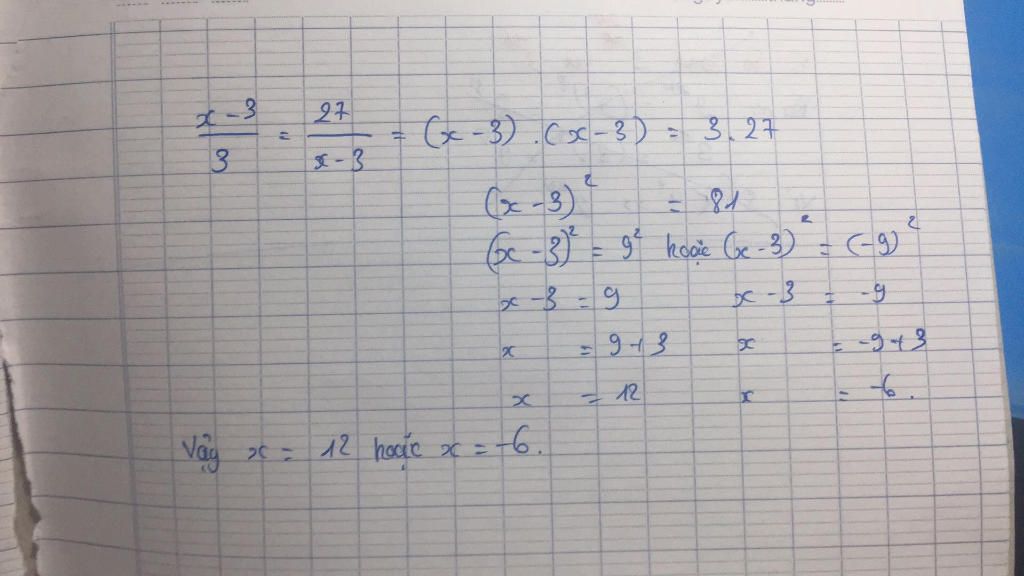 x - 3 / 3 = 27 / x - 3 = (x - 3) . (x - 3) = 3 . 27
(x - 3)² = 81
(x - 3)² = 9² hoặc (x - 3)² = (-9)²
x - 3 = 9 x - 3 = -9
x = 9 + 3 x = -9 + 3
x = 12 x = -6.
Vậy x = 12 hoặc x = -6.